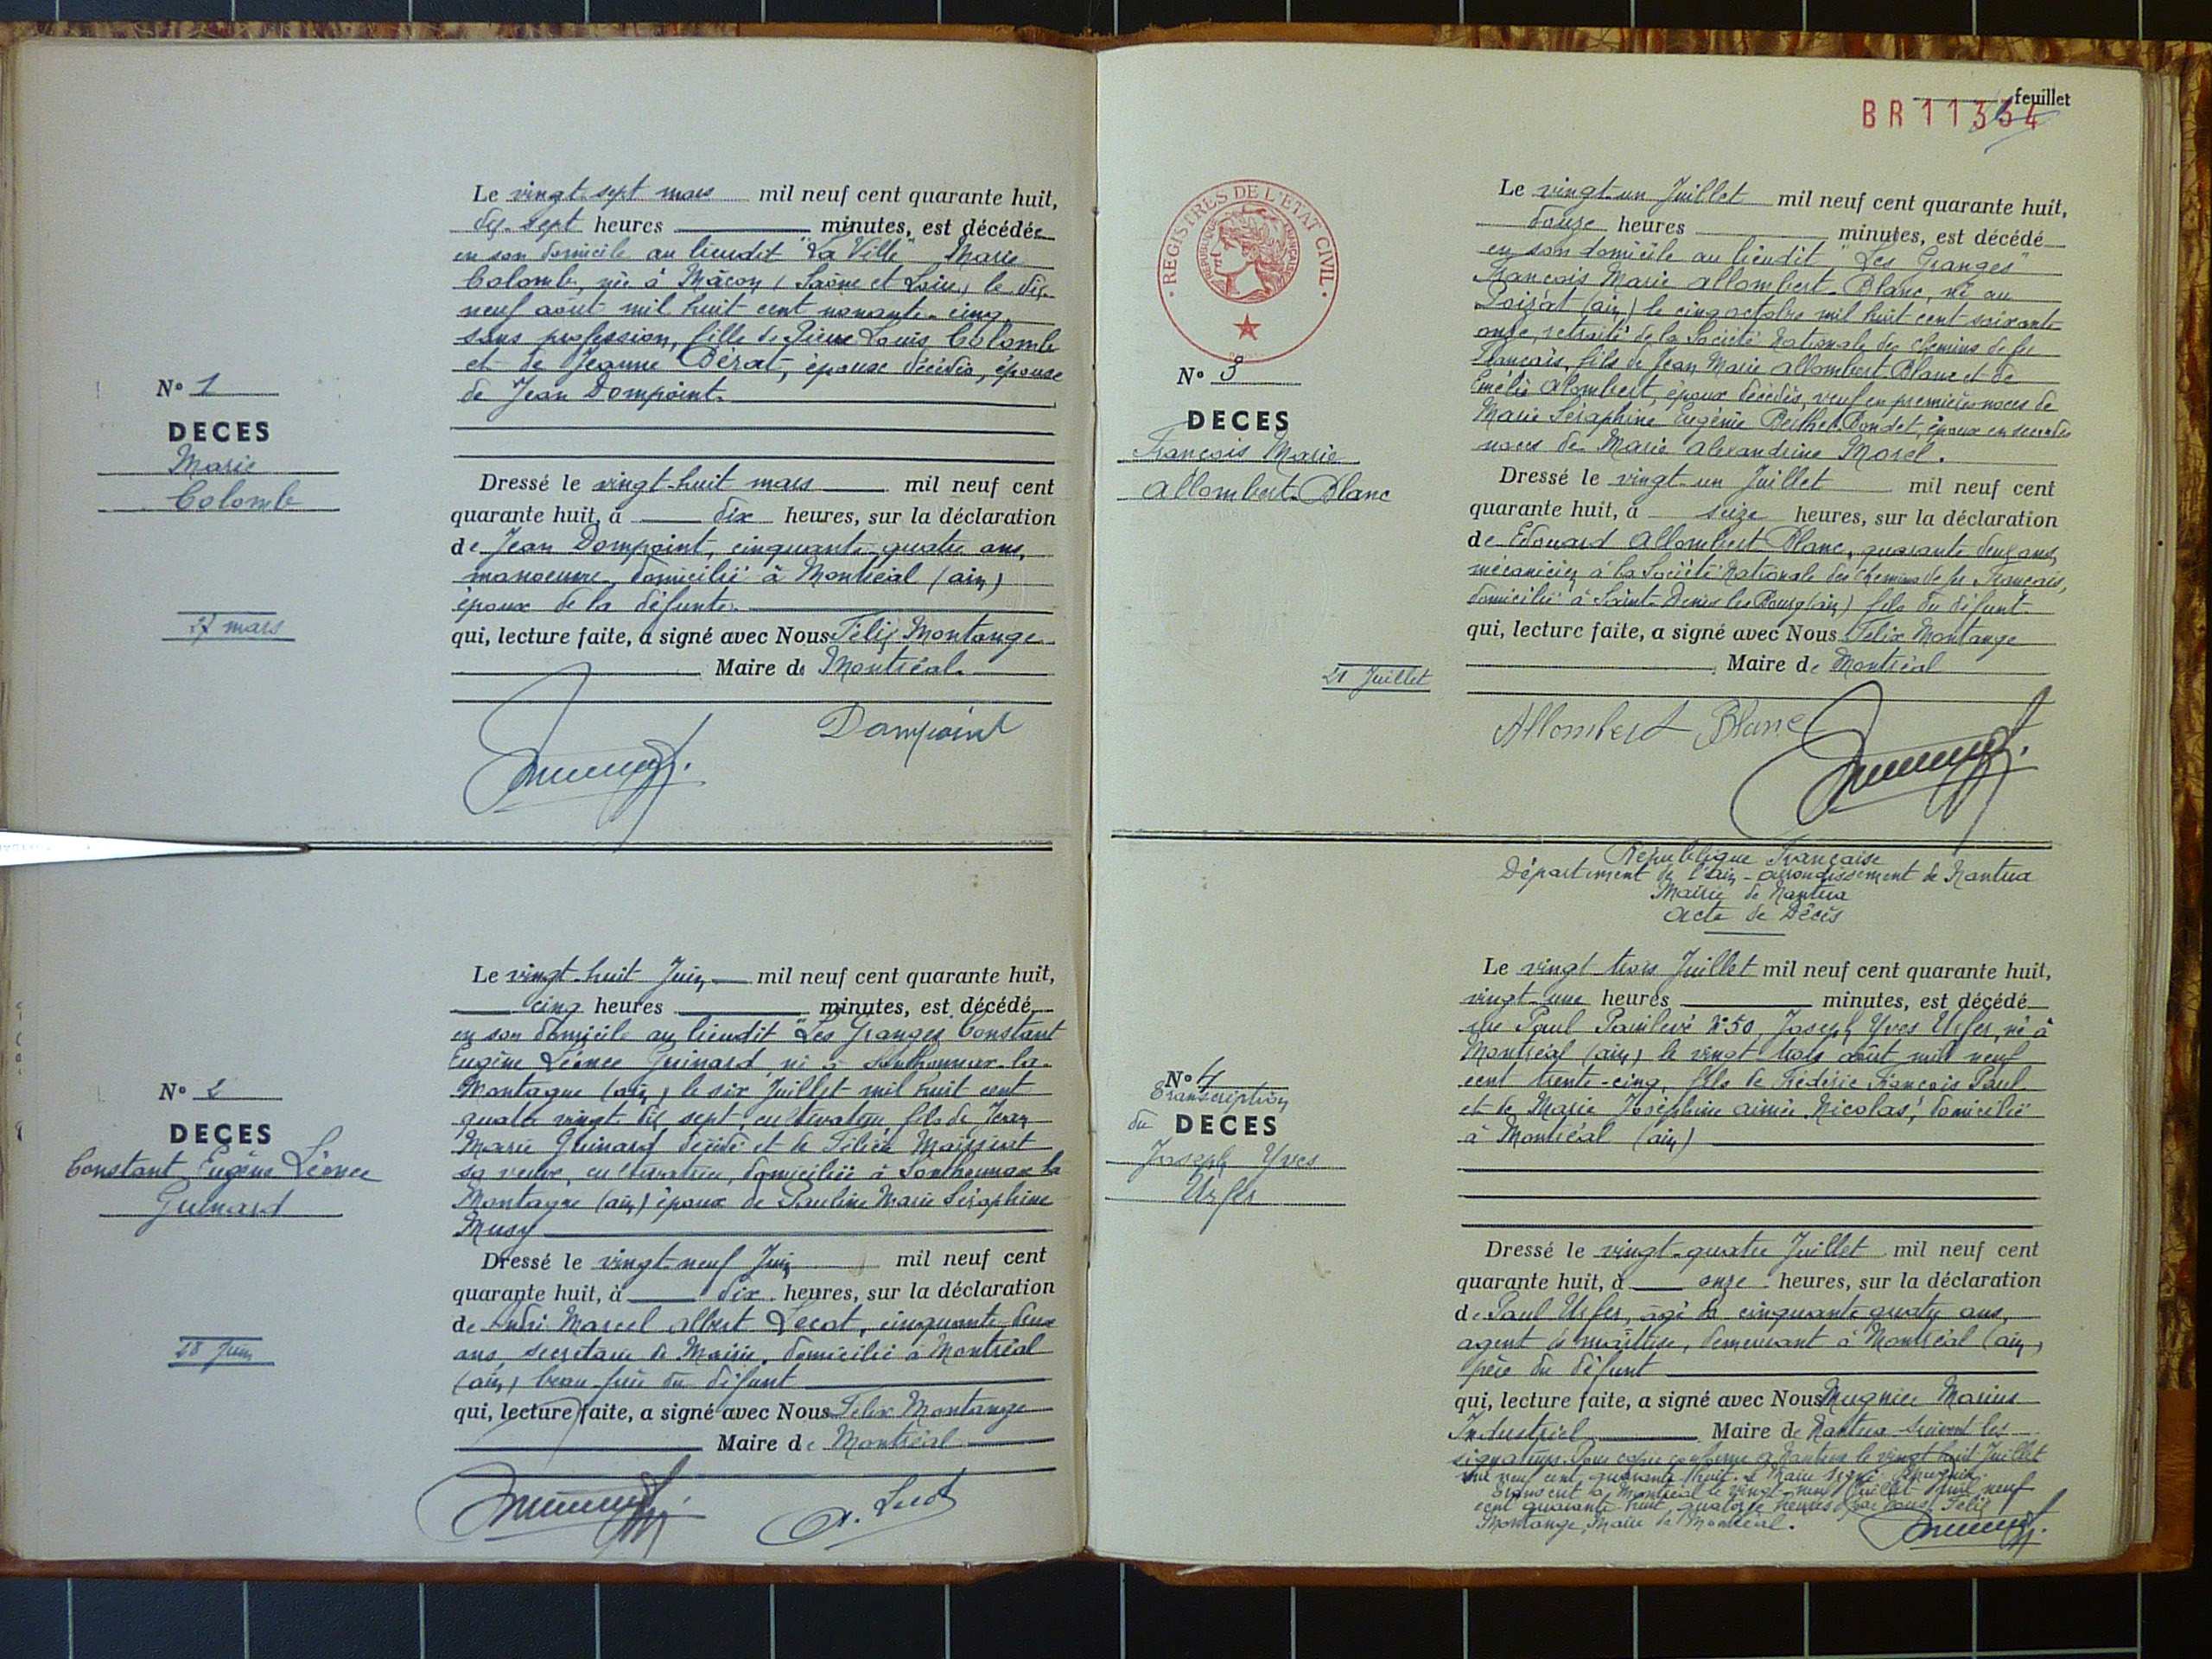 Le vingt-sept mars mil neuf cent quarante huit,
dix-sept heures minutes, est décédée
en son domicile au lieudit "La Ville" Marie
Colomb, née à Mâcon (Saône et Loire) le dix-
neuf août mil huit cent nonante-cinq,
sans profession, fille de Pierre Louis Colomb
et de Jeanne Dérat, époux décédés, épouse
de Jean Dompoint.
N° 1
DECES
Marie
Colomb
27 mars
Dressé le vingt-huit mars mil neuf cent
quarante huit, à dix heures, sur la déclaration
de Jean Dompoint, cinquante-quatre ans,
manoeuvre, domicilié à Montréal (ain)
époux de la défunte.
qui, lecture faite, a signé avec Nous Félix Montange
Maire de Montréal.
Dompoint
Le vingt-huit Juin mil neuf cent quarante huit,
cinq heures minutes, est décédé
en son domicile au lieudit "Les Granges" Constant
Eugène Léonce Guinard, né à Sonthonnax-la-
Montagne (ain) le six Juillet mil huit cent
quatre vingt dix sept, cultivateur, fils de Jean
Marie Guinard décédé et de Félicie Maissiat
sa veuve, cultivatrice, domiciliée à Sonthonnax la
Montagne (ain) époux de Pauline Marie Séraphine
Musy
N° 2
DECES
Constant Eugène Léonce
Guinard
28 Juin
Dressé le vingt-neuf Juin mil neuf cent
quarante huit, à dix heures, sur la déclaration
de André Marcel Albert Lecot, cinquante-deux
ans, secrétaire de Mairie, domicilié à Montréal
(ain) beau-frère du défunt
qui, lecture faite, a signé avec Nous Félix Montange
Maire de Montréal
A. Lecot
feuillet
BR11334
REGISTRES DE L'ETAT CIVIL
REPUBLIQUE FRANÇAISE
Le vingt-un Juillet mil neuf cent quarante huit,
douze heures minutes, est décédé
en son domicile au lieudit "Les Granges"
François Marie Allombert-Blanc, né au
Poizat (ain) le cinq octobre mil huit cent soixante
onze, retraité de la Société Nationale des Chemins de fer
Français, fils de Jean Marie Allombert-Blanc et de
Emélie Alombert, époux décédés, veuf en premières noces de
Marie Séraphine Eugénie Berthet-Bondet, époux en secondes
noces de Marie Alexandrine Morel.
N° 3
DECES
François Marie
Allombert-Blanc
21 Juillet
Dressé le vingt-un Juillet mil neuf cent
quarante huit, à seize heures, sur la déclaration
de Edouard Allombert-Blanc, quarante deux ans,
mécanicien à la Société Nationale des Chemins de fer Français,
domicilié à Saint-Denis les Bourg (ain) fils du défunt
qui, lecture faite, a signé avec Nous Félix Montange
Maire de Montréal
Allombert Blanc
République Française
Département de l'Ain - Arrondissement de Nantua
Mairie de Nantua
Acte de Décès
Le vingt trois Juillet mil neuf cent quarante huit,
vingt-une heures minutes, est décédé
rue Paul Painlevé N°50, Joseph Yves Urfer, né à
Montréal (ain) le vingt trois août mil neuf
cent trente-cinq, fils de Frédéric François Paul
et de Marie Joséphine Aimée Nicolas, domicilié
à Montréal (ain)
N° 4
Transcription
du DECES
Joseph Yves
Urfer
Dressé le vingt-quatre Juillet mil neuf cent
quarante huit, à onze heures, sur la déclaration
de Paul Urfer, âgé de cinquante quatre ans,
agent de maîtrise, demeurant à Montréal (ain)
père du défunt
qui, lecture faite, a signé avec Nous Mugnier Marius
Industriel Maire de Nantua suivent les
signatures. Pour copie conforme à Nantua le vingt huit Juillet
mil neuf cent quarante huit. Le Maire signé: Mugnier.
Transcrit à Montréal le vingt-neuf Juillet mil neuf
cent quarante huit quatorze heures par nous Félix
Montange, Maire de Montréal.